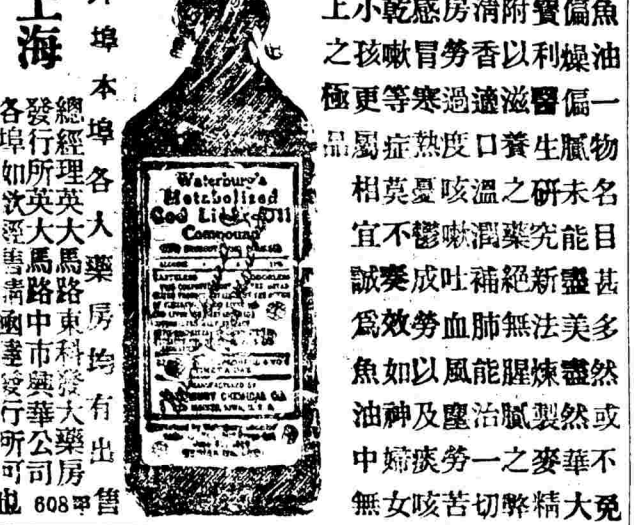 魚油一物名目甚多然或不免
偏燥偏膩未能盡美盡然華大
寶利醫生研究新法煉製麥精
附以滋養之藥絕無腥膩之弊
清香適口溫潤補肺能治一切
房勞過度咳嗽吐血風塵勞苦
感冒寒熱憂鬱成勞以及痰咳
乾嗽等症莫不奏效如神婦女
小孩更屬相宜誠爲魚油中無
上之極品
Waterbury's
Metabolized
Cod Liver Oil
Compound
MANUFACTURED BY
CHEMICAL CO.
埠本埠各大藥房均有出售
上海
總經理英大馬路東科發大藥房
發行所英大馬路中市興華公司
各埠如欲經售請函達發行所可也
608